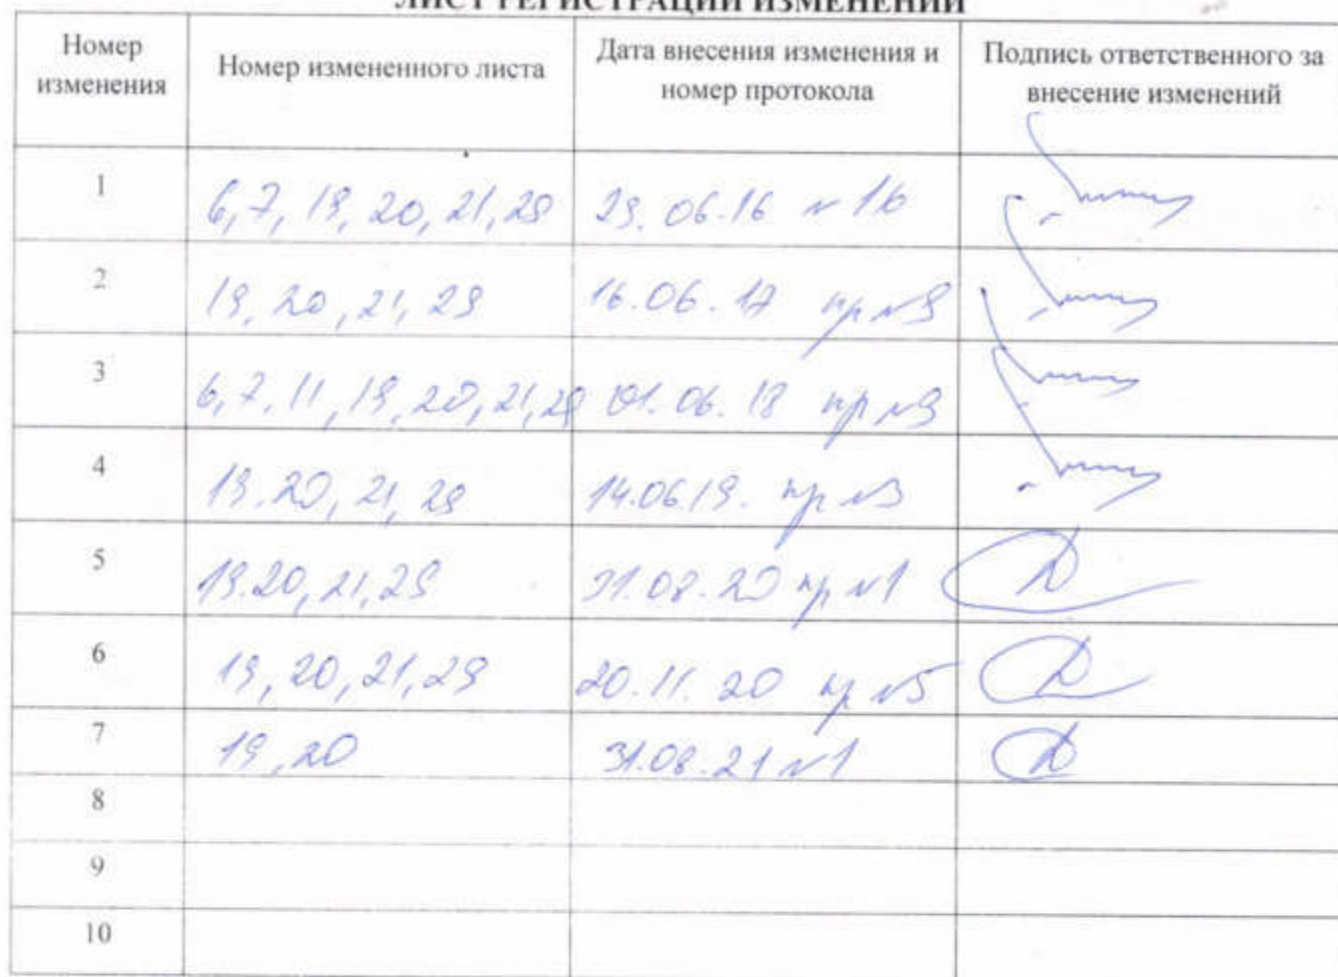 ЛИСТ РЕГИСТРАЦИИ ИЗМЕНЕНИЙ
Номер изменения
Номер измененного листа
Дата внесения изменения и номер протокола
Подпись ответственного за внесение изменений
1 6,7, 19, 20, 21, 29 29.06.16 №16
2 19, 20, 21, 29 16.06.17 пр №9
3 6,7, 11, 19, 20, 21, 29 01.06.18 пр №9
4 19.20, 21, 29 14.06.19. пр №
5 19.20, 21, 29 31.08.20 пр №1
6 19, 20, 21, 29 20.11.20 пр №5
7 19, 20 31.08.21 №1
8
9
10